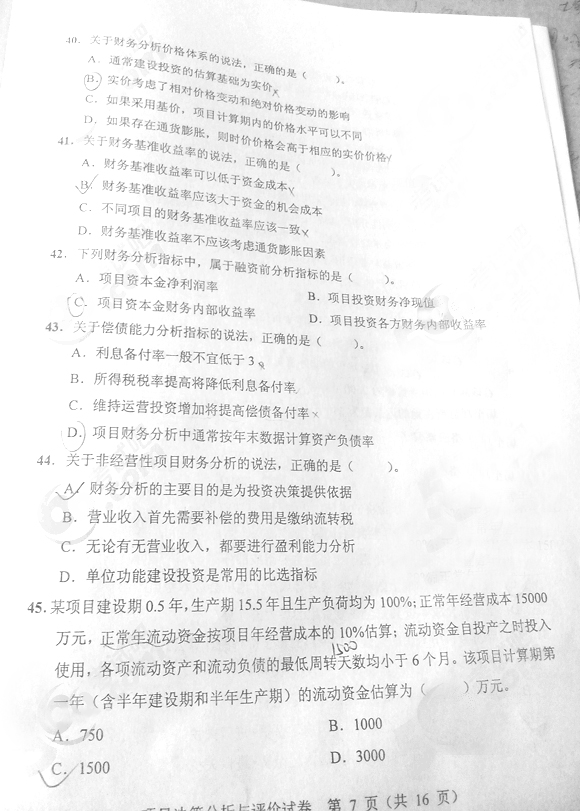 40. 关于财务分析价格体系的说法，正确的是（ ）。
A. 通常建设投资的估算基础为实价
B. 实价考虑了相对价格变动和绝对价格变动的影响
C. 如果采用基价，项目计算期内的价格水平可以不同
D. 如果存在通货膨胀，则时价价格会高于相应的实价价格
41. 关于财务基准收益率的说法，正确的是（ ）。
A. 财务基准收益率可以低于资金成本
B. 财务基准收益率应该大于资金的机会成本
C. 不同项目的财务基准收益率应该一致
D. 财务基准收益率不应该考虑通货膨胀因素
42. 下列财务分析指标中，属于融资前分析指标的是（ ）。
A. 项目资本金净利润率
B. 项目投资财务净现值
C. 项目资本金财务内部收益率
D. 项目投资各方财务内部收益率
43. 关于偿债能力分析指标的说法，正确的是（ ）。
A. 利息备付率一般不宜低于 3
B. 所得税税率提高将降低利息备付率
C. 维持运营投资增加将提高偿债备付率
D. 项目财务分析中通常按年末数据计算资产负债率
44. 关于非经营性项目财务分析的说法，正确的是（ ）。
A. 财务分析的主要目的是为投资决策提供依据
B. 营业收入首先需要补偿的费用是缴纳流转税
C. 无论有无营业收入，都要进行盈利能力分析
D. 单位功能建设投资是常用的比选指标
45. 某项目建设期 0.5 年，生产期 15.5 年且生产负荷均为 100%；正常年经营成本 15000
万元，正常年流动资金按项目年经营成本的 10%估算；流动资金自投产之时投入
1500
使用，各项流动资产和流动负债的最低周转天数均小于 6 个月。该项目计算期第
一年（含半年建设期和半年生产期）的流动资金估算为（ ）万元。
A. 750
B. 1000
C. 1500
D. 3000
项目决策分析与评价试卷 第 7 页（共 16 页）